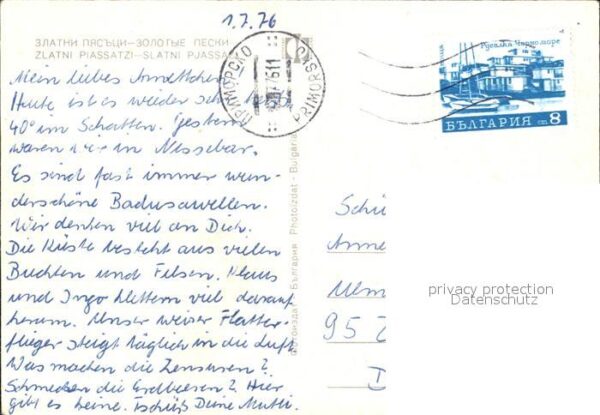 1.7.76
ЗЛАТНИ ПЯСЪЦИ—ЗОЛОТЫЕ ПЕСКИ
ZLATNI PIASSATZI—SLATNI PJASSA
ПРИМОРСКО
PRIMORSKO
Русалка Черноморие
БЪЛГАРИЯ ст 8
Mein liebes Annettchen.
Heute ist es wieder sehr heiß,
40° im Schatten. Gestern
waren wir in Nessebar.
Es sind fast immer wun-
derschöne Badewellen.
Wir denken viel an Dich.
Die Küste besteht aus vielen
Buchten und Felsen. Klaus
und Ingo klettern viel darauf
herum. Unser weiser Flatter-
flieger steigt täglich in die Luft.
Was machen die Zensuren?
Schmecken die Erdbeeren? Hier
gibt es keine. Tschüß Deine Mutti.
Фотоиздат - България Photoizdat - Bulgaria
Schü
Anne
95
privacy protection
Datenschutz